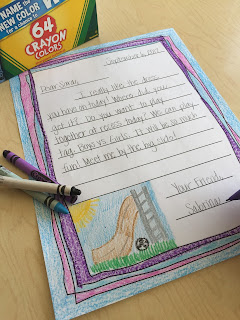 NAME THE
NEW COLOR
64
CRAYON
COLORS
September 6, 2017
Dear Sarah,
I really like the dress
you have on today! Where did you
get it? Do you want to play
together at recess today? We can play
tag, Boys vs. Girls. It will be so much
fun! Meet me by the big slide!
Your Friend,
Sabrina